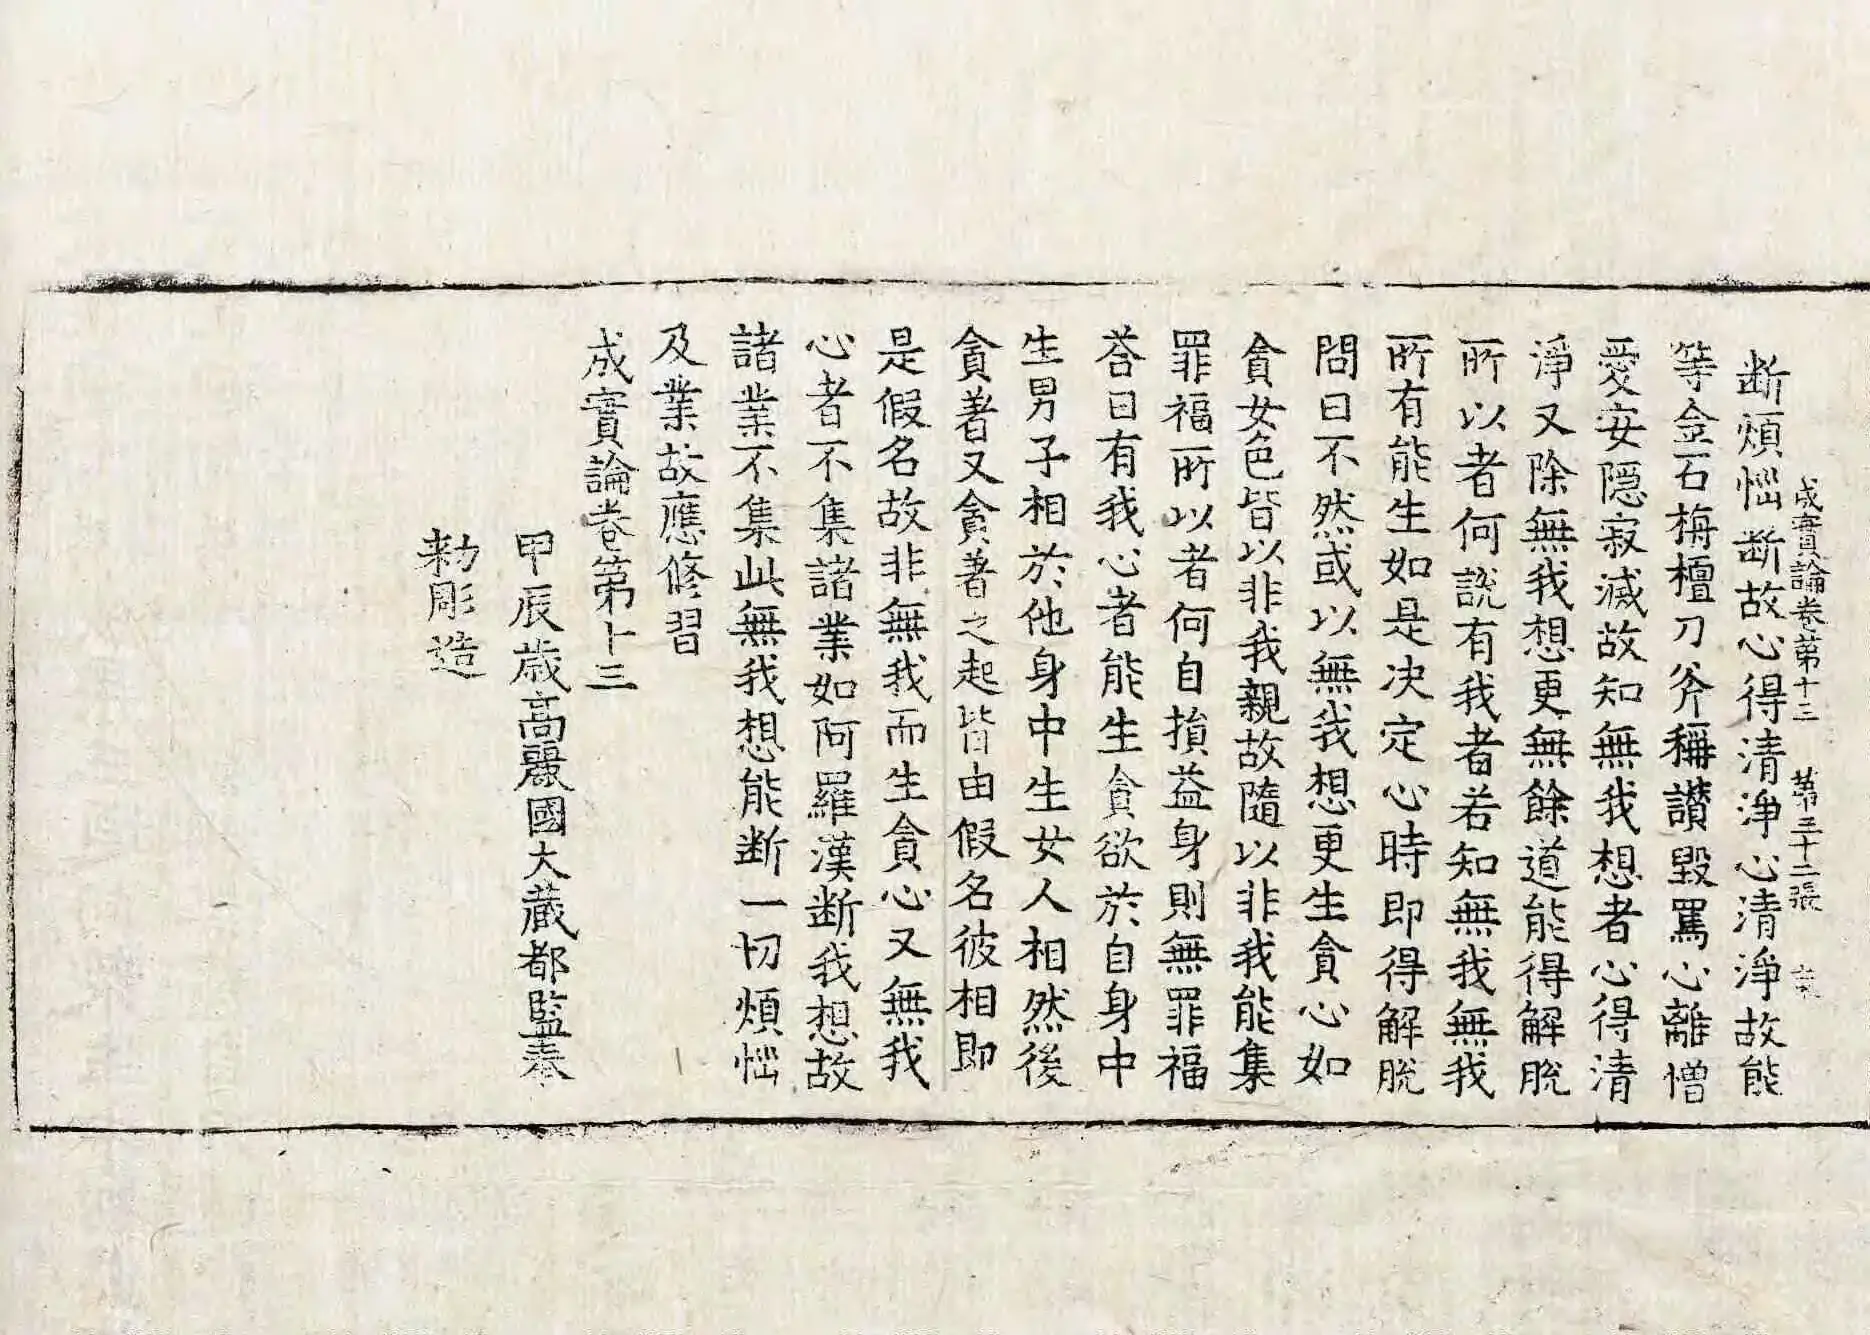 成實論卷第十三　第三十二張
断煩惱断故心得清淨心清淨故能
等金石栴檀刀斧稱讃毀罵心離憎
愛安隠寂滅故知無我想者心得清
淨又除無我想更無餘道能得解脫
所以者何說有我者若知無我無我
所有能生如是决定心時即得解脫
問曰不然或以無我想更生貪心如
貪女色皆以非我親故隨以非我能集
罪福所以者何自損益身則無罪福
荅曰有我心者能生貪欲於自身中
生男子相於他身中生女人相然後
貪著又貪著之起皆由假名彼相即
是假名故非無我而生貪心又無我
心者不集諸業如阿羅漢断我想故
諸業不集此無我想能断一切煩惱
及業故應修習
成實論卷第十三
甲辰歲高麗國大藏都監奉
勑彫造